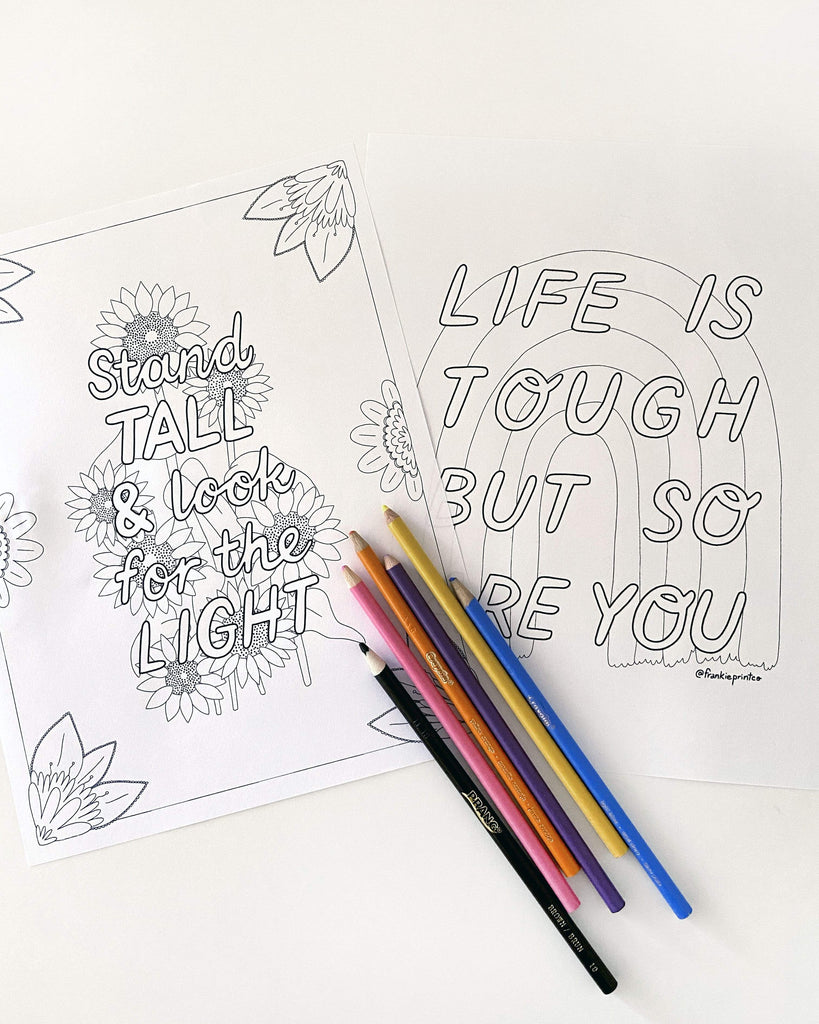 Stand
TALL
& look
for the
LIGHT
LIFE IS
TOUGH
BUT SO
RE YOU
@frankieprintco
PRANG
BROWN / BRUN 10